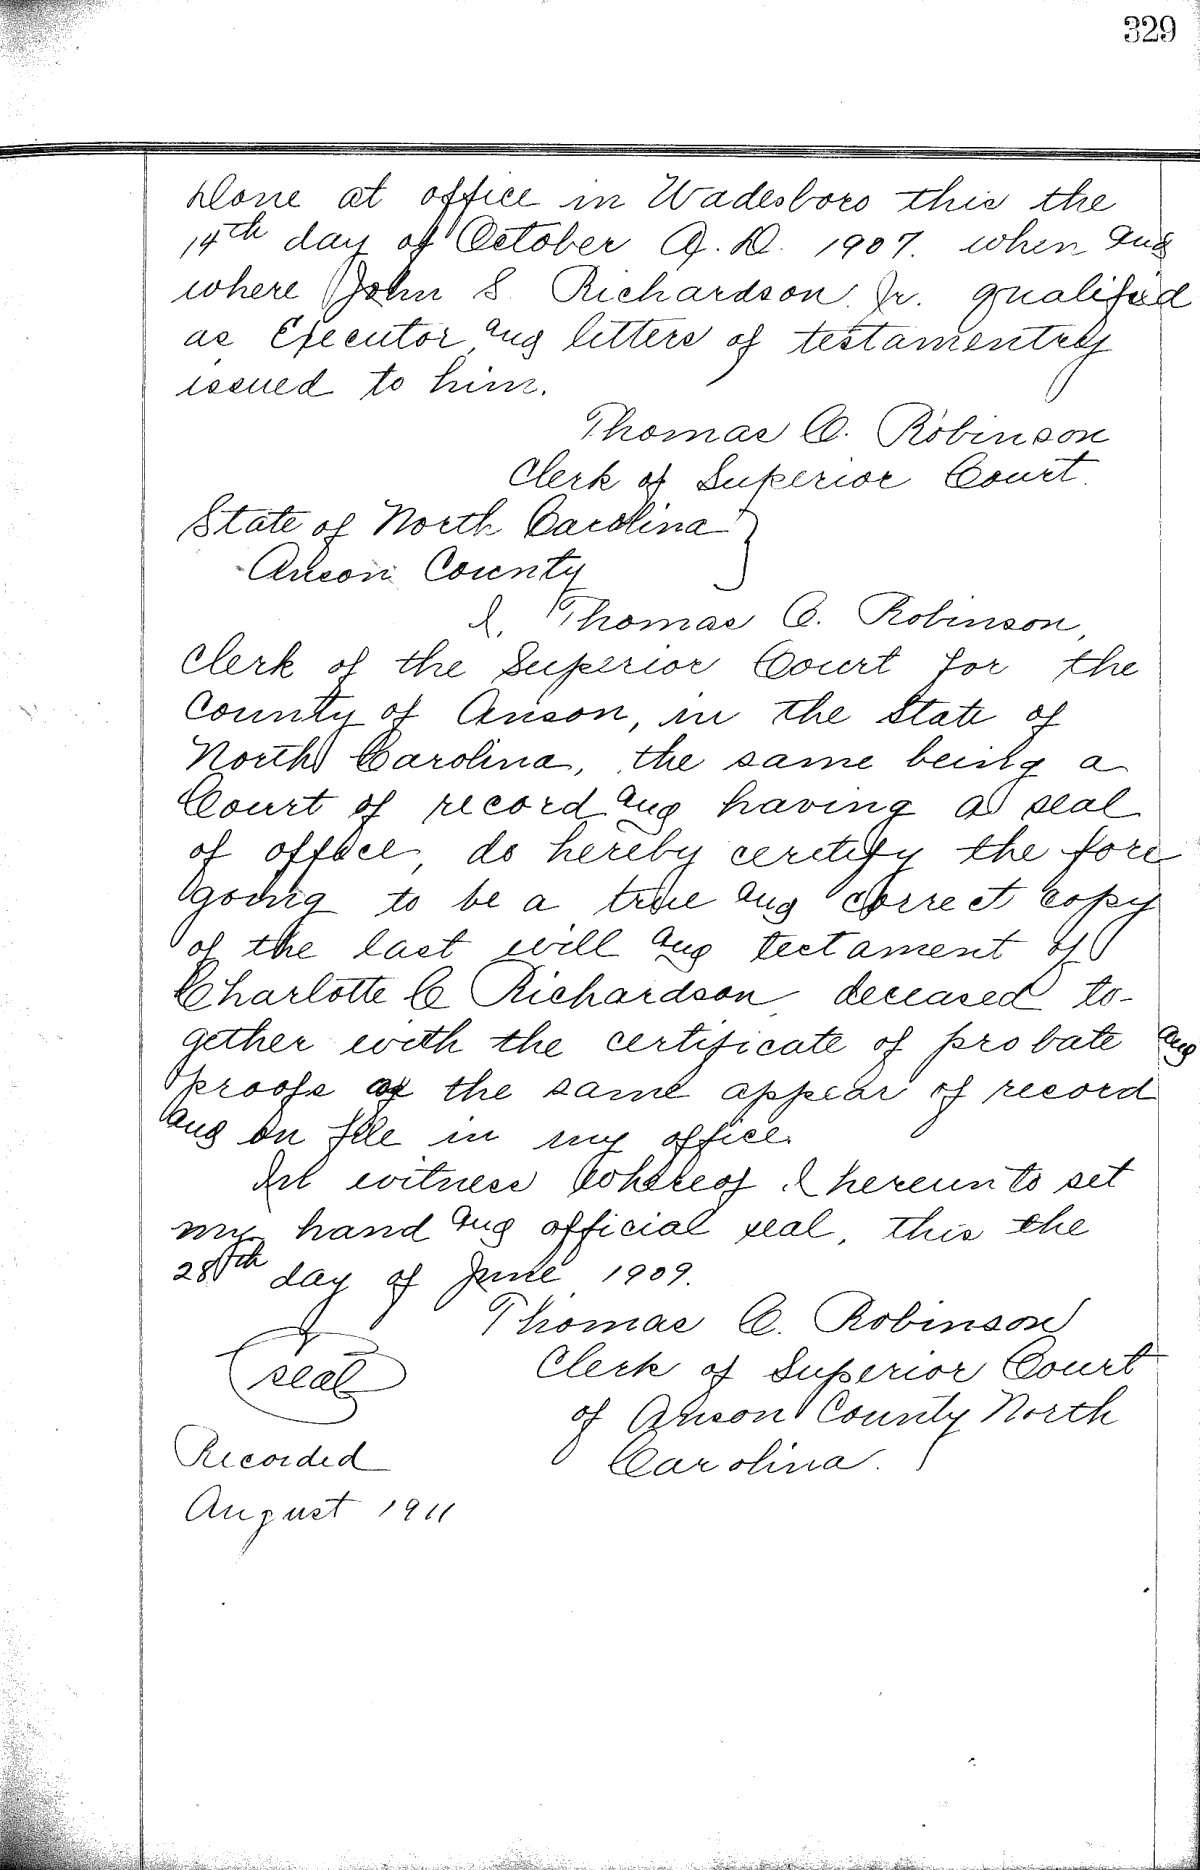 329
Done at office in Wadesboro this the
14th day of October A. D. 1907. when and
where John S. Richardson Jr. qualified
as Executor and letters of testamentry
issued to him.
Thomas C. Robinson
Clerk of Superior Court.
State of North Carolina }
Anson County
I, Thomas C. Robinson,
Clerk of the Superior Court for the
County of Anson, in the State of
North Carolina, the same being a
Court of record and having a seal
of office, do hereby ceretify the fore
going to be a true and correct copy
of the last will and testament of
Charlotte C Richardson deceased to-
gether with the certificate of probate and
proofs as the same appear of record
and on file in my office.
In witness whereof I hereunto set
my hand and official seal, this the
28th day of June 1909.
Thomas C. Robinson
seal
Clerk of Superior Court
of Anson County North
Carolina.
Recorded
August 1911